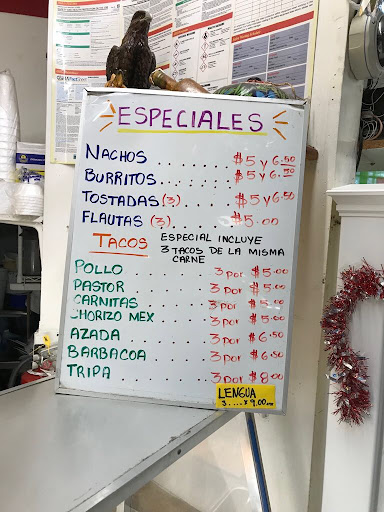 ESPECIALES
NACHOS ........ $5 y 6.50
BURRITOS ....... $5 y 6.50
TOSTADAS (3) ..... $5 y 6.50
FLAUTAS (3) ...... $5.00
TACOS ESPECIAL INCLUYE
3 TACOS DE LA MISMA
CARNE
POLLO ........ 3 por $5.00
PASTOR ........ 3 por $5.00
CARNITAS ....... 3 por $5.00
CHORIZO MEX ..... 3 por $5.00
AZADA ........ 3 por $6.50
BARBACOA ....... 3 por $6.50
TRIPA ......... 3 por $8.00
LENGUA
3 .... $9.00